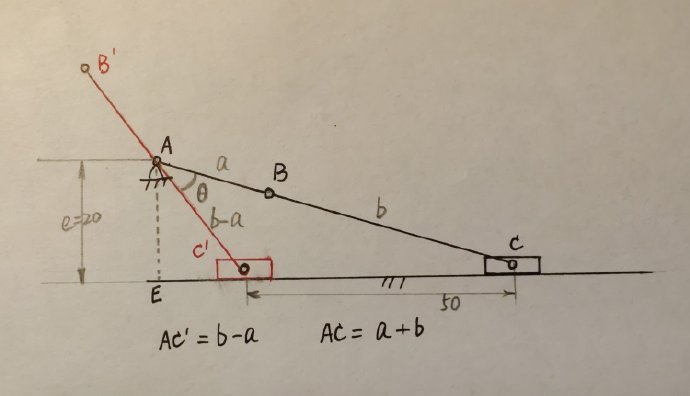 B'
A
a
B
θ
b
e=20
b-a
C'
C
E
50
AC' = b-a AC = a+b